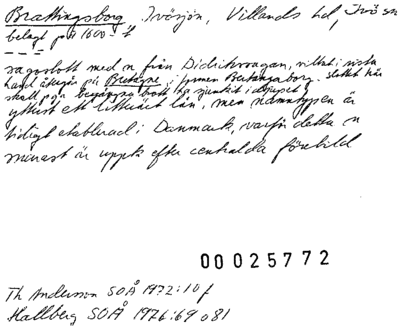 Brattingsborg, Ivösjön, Villands hd, Ivö sn
belagt på 1600-t
sagoslott med n från Didrikssagan, vilket i sista
hand återgår på Bretagne, i formen Bertangaborg. slottet här
skall pga begångna brott ha sjunkit i djupet
ytterst ett litterärt lån, men namntypen är
tidigt etablerad i Danmark, varför detta n
närmast är uppk efter centrala förebild
00025772
Th Andersson SOÅ 1972:10 f
Hallberg SOÅ 1976:69 o 81